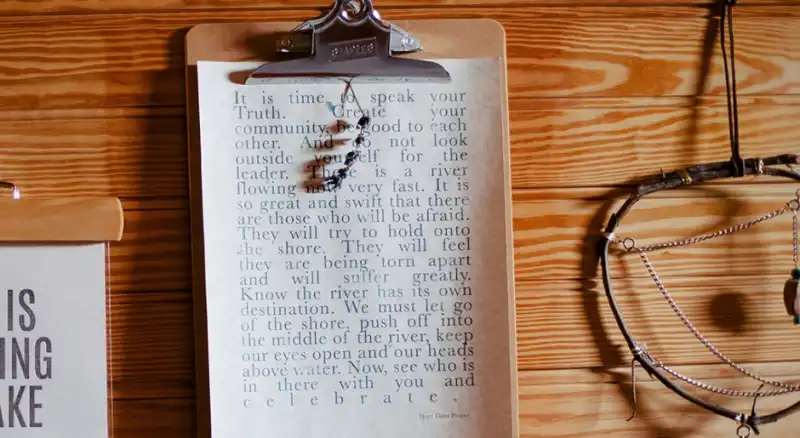 STAPLES
It is time to speak your
Truth. Create your
community, be good to each
other. And do not look
outside yourself for the
leader. There is a river
flowing now very fast. It is
so great and swift that there
are those who will be afraid.
They will try to hold onto
the shore. They will feel
they are being torn apart
and will suffer greatly.
Know the river has its own
destination. We must let go
of the shore, push off into
the middle of the river, keep
our eyes open and our heads
above water. Now, see who is
in there with you and
celebrate.
Hopi Elder Prayer
IS
ING
AKE